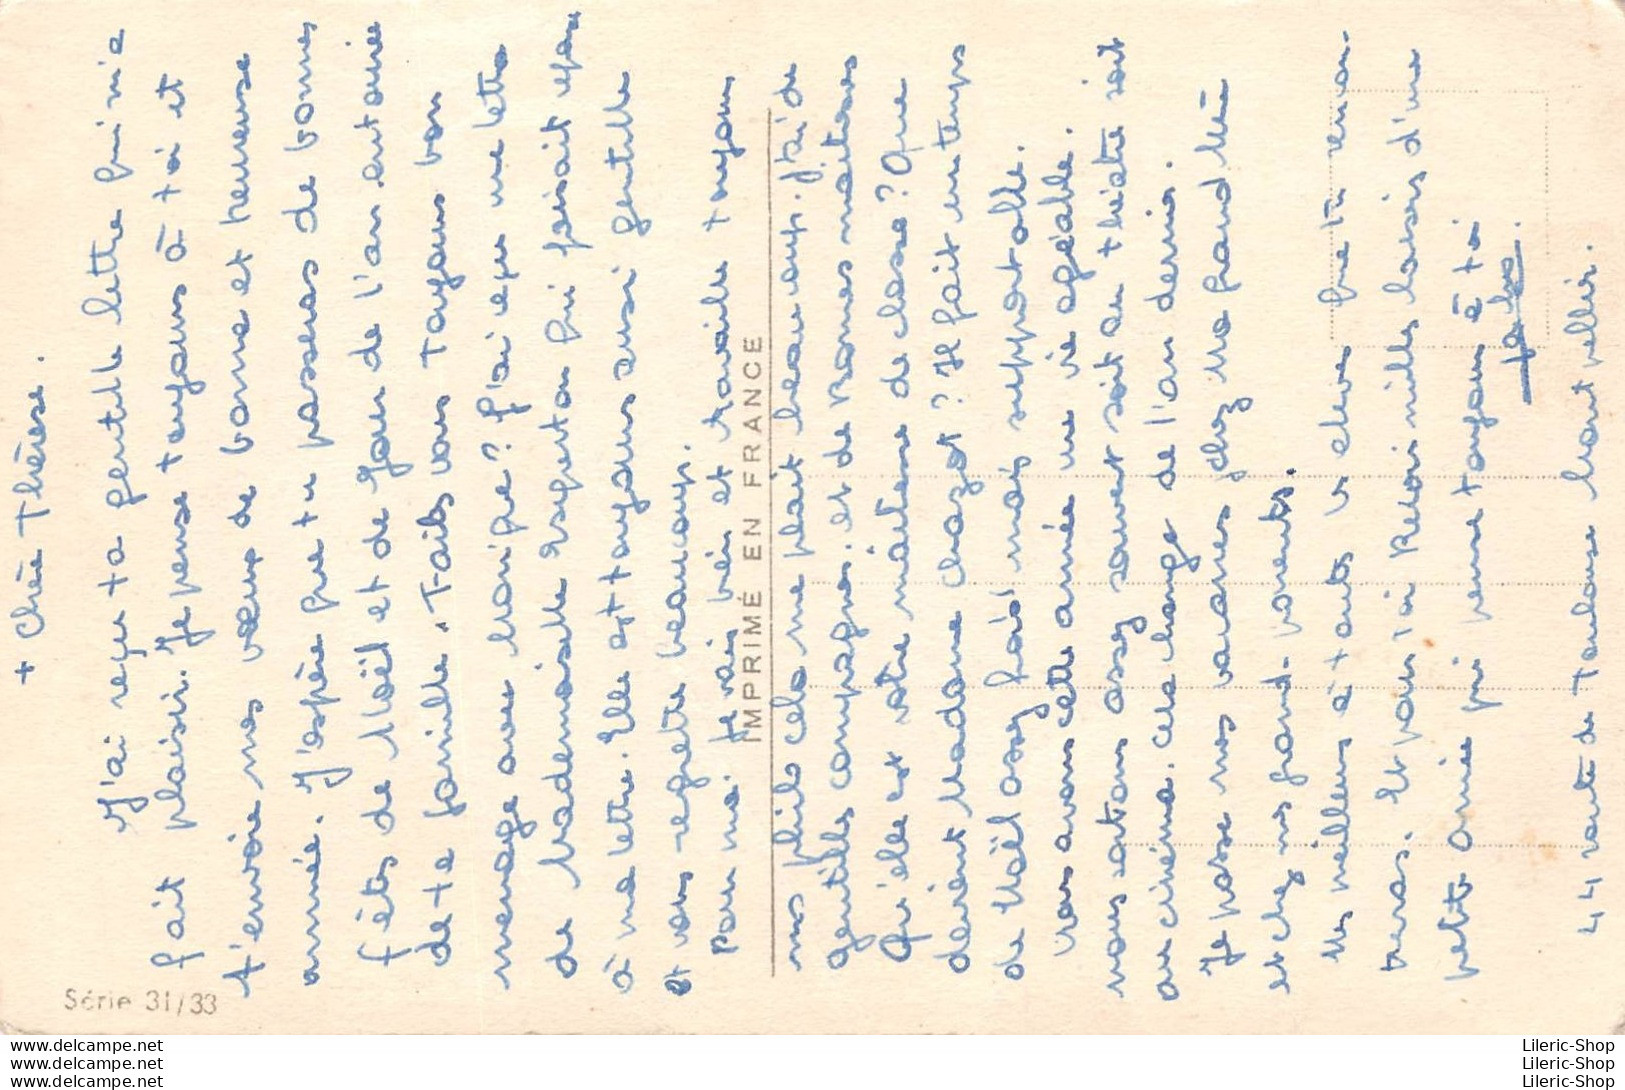 + Chère Thérèse.
J'ai reçu ta gentille lettre qui m'a
fait plaisir. Je pense toujours à toi et
t'envoie mes vœux de bonne et heureuse
année. J'espère que tu passeras de bonnes
fêtes de Noël et de Jour de l'an entourée
de ta famille. Faits vous toujours bon
menage avec Monique? J'ai reçu une lettre
de Mademoiselle qui faisait reponse
à ma lettre. Elle est toujours aussi gentille
et vous regrette beaucoup.
Pour moi je vais bien et travaille toujours
mes piles cela me plait beaucoup. J'ai de
gentilles compagnes. et de bonnes maitresses
Qui elle est votre maitresse de classe? Que
devient Madame Chazot? Il fait un temps
de Noël assez frois mais supportable.
Nous avons cette année une vie agréable.
nous sortons assez souvent soit au théâtre soit
au cinéma. cela change de l'an dernier.
Je passe mes vacances chez Ma grand Mère
et chez mes grand-parents.
Mes meilleurs à touts élèves que tu rencon-
treras. Et pour toi Recois milles baisers d'une
petite amie qui pense toujours à toi
44 route de Toulouse Montpellier.
IMPRIMÉ EN FRANCE
Série 31/33
www.delcampe.net
www.delcampe.net
www.delcampe.net
Lileric-Shop
Lileric-Shop
Lileric-Shop